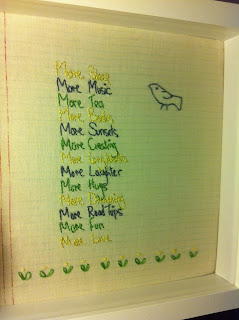 More Sleep
More Music
More Tea
More Books
More Sunsets
More Creating
More
More Laughter
More Hugs
More Dreaming
More Road Trips
More Fun
More Love